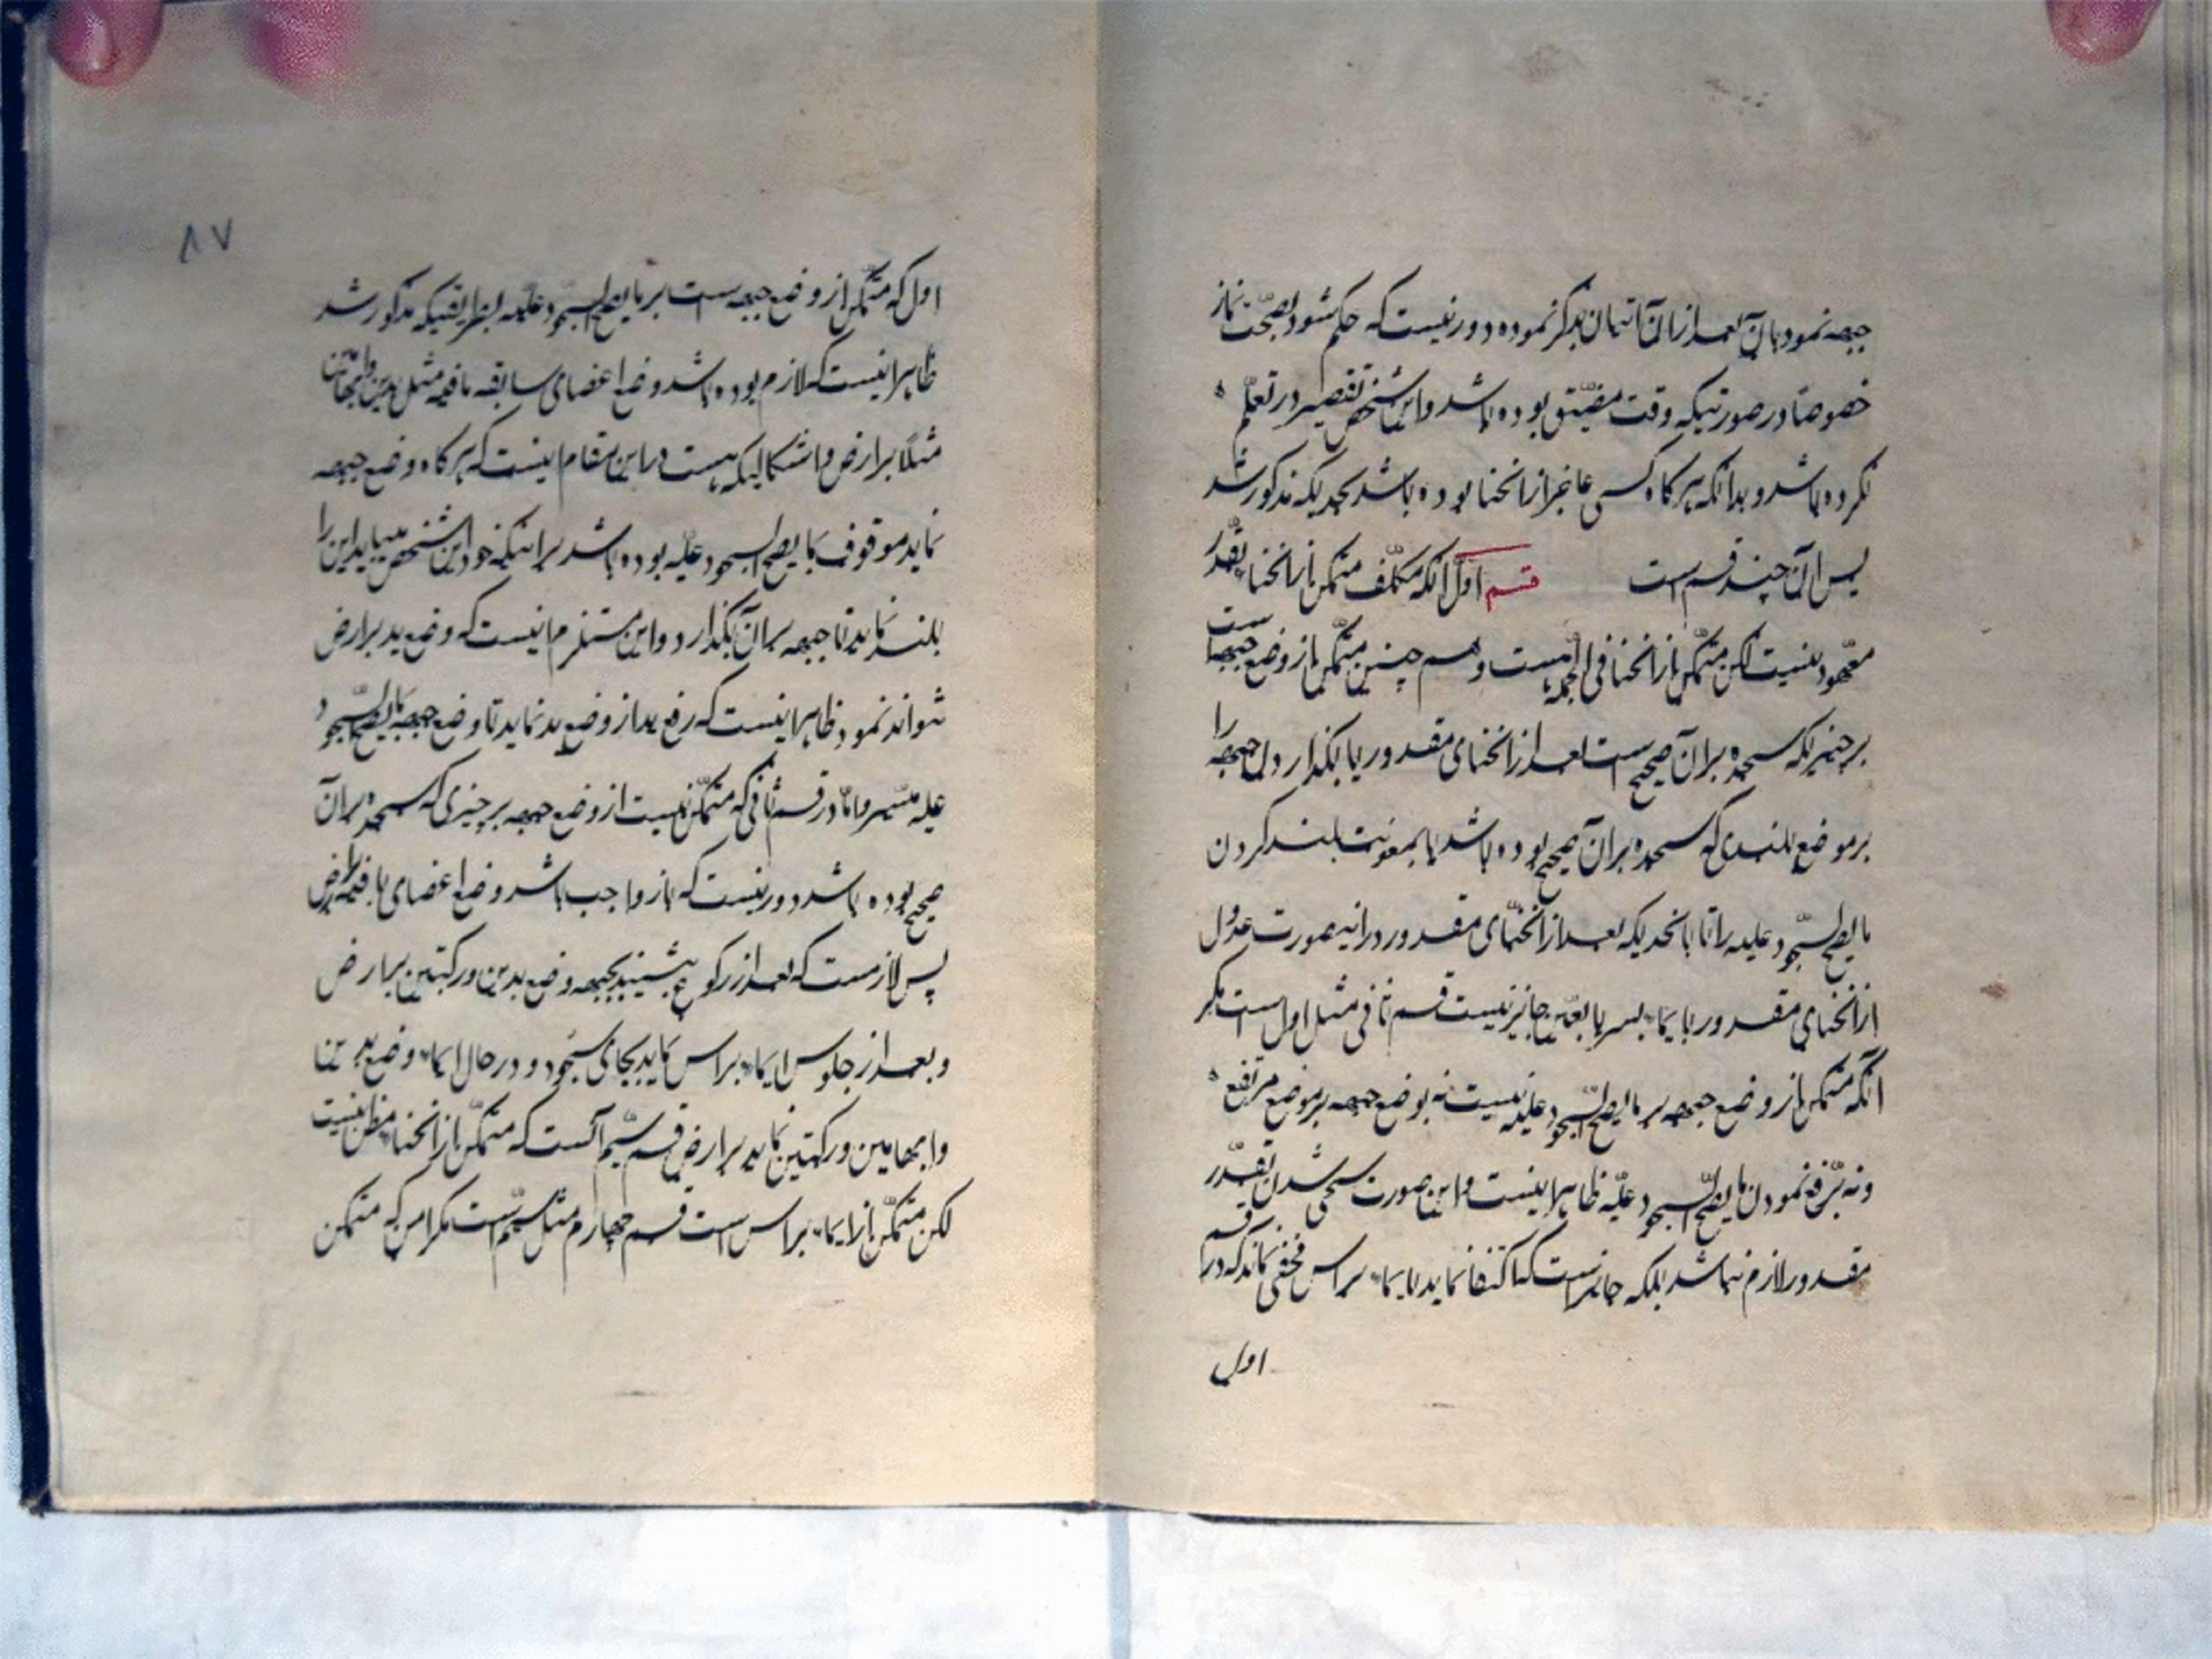 جبهه نمود بآن بعد از آن اتیان بذکر نموده دور نیست که حکم شود بصحت نماز
خصوصا در صورتیکه وقت مضیّق بوده باشد و این شخص تقصیر در تعلّم
نکرده باشد و بدانکه هر کاه کسی عاجز از انحنا بوده باشد بحدیکه مذکور شد
پس آن چند قسم است قسم اول آنکه مکلّف متمکن از انحنا بقدر
معهود نیست لکن متمکّن از انحنا فی الجمله هست و هم چنین متمکّن از وضع جبهه است
بر چیزیکه سجده بر آن صحیح است بعد از انحنای مقدور یا بکذارد جبهه را
بر موضع بلندی که سجده بر آن صحیح بوده باشد یا بمعونت بلند کردن
ما یصحّ السّجود علیه را تا بانحدیکه بعد از انحنای مقدور در اینصورت عدول
از انحنای مقدور بایماء بسر یا بعین جایز نیست قسم ثانی مثل اول است مکر
آنکه متمکن از وضع جبهه بر ما یصحّ السّجود علیه نیست نه بوضع جبهه بر موضع مرتفع
و نه برفع نمودن ما یصحّ السّجود علیه ظاهرا اینست و این صورت منحنی شدن بقدر
مقدور لازم نباشد بلکه جایز است که اکتفا نماید بایماء براس مخفی نماند که در قسم
اول
۸۷
اول که متمکّن از وضع جبهه است بر ما یصحّ السّجود علیه بطریقیکه مذکور شد
ظاهرا اینست که لازم بوده باشد وضع اعضای سابقه باقیه مثل یدین و ابهامین
مثلا بر ارض و اشکالیکه هست در این مقام اینست که هر کاه وضع جبهه
نماید موقوف بما یصحّ السجود علیه بوده باشد برای اینکه خود این شخص میباید این را
بلند نماید تا جبهه بر آن بکذارد و این مستلزم اینست که وضع ید بر ارض
نتواند نمود ظاهرا اینست که رفع ید از وضع ید نماید تا وضع جبهه بما یصحّ السّجود
علیه میسر و امّا در قسم ثانی که متمکّن نیست از وضع جبهه بر چیزی که سجده بر آن
صحیح بوده باشد دور نیست که باز واجب باشد وضع اعضای باقیه بر ارض
پس لازمست که بعد از رکوع بنشیند بجهه وضع یدین و رکبتین بر ارض
و بعد از جلوس ایماء براس نماید بجای سجود و در حال ایماء وضع یدین
و ابهامین و رکبتین نماید بر ارض قسم سیّم آنست که متمکّن از انحنا مطلقا نیست
لکن متمکّن از ایماء براس است قسم چهارم مثل سیّم است مکر امن که متمکن